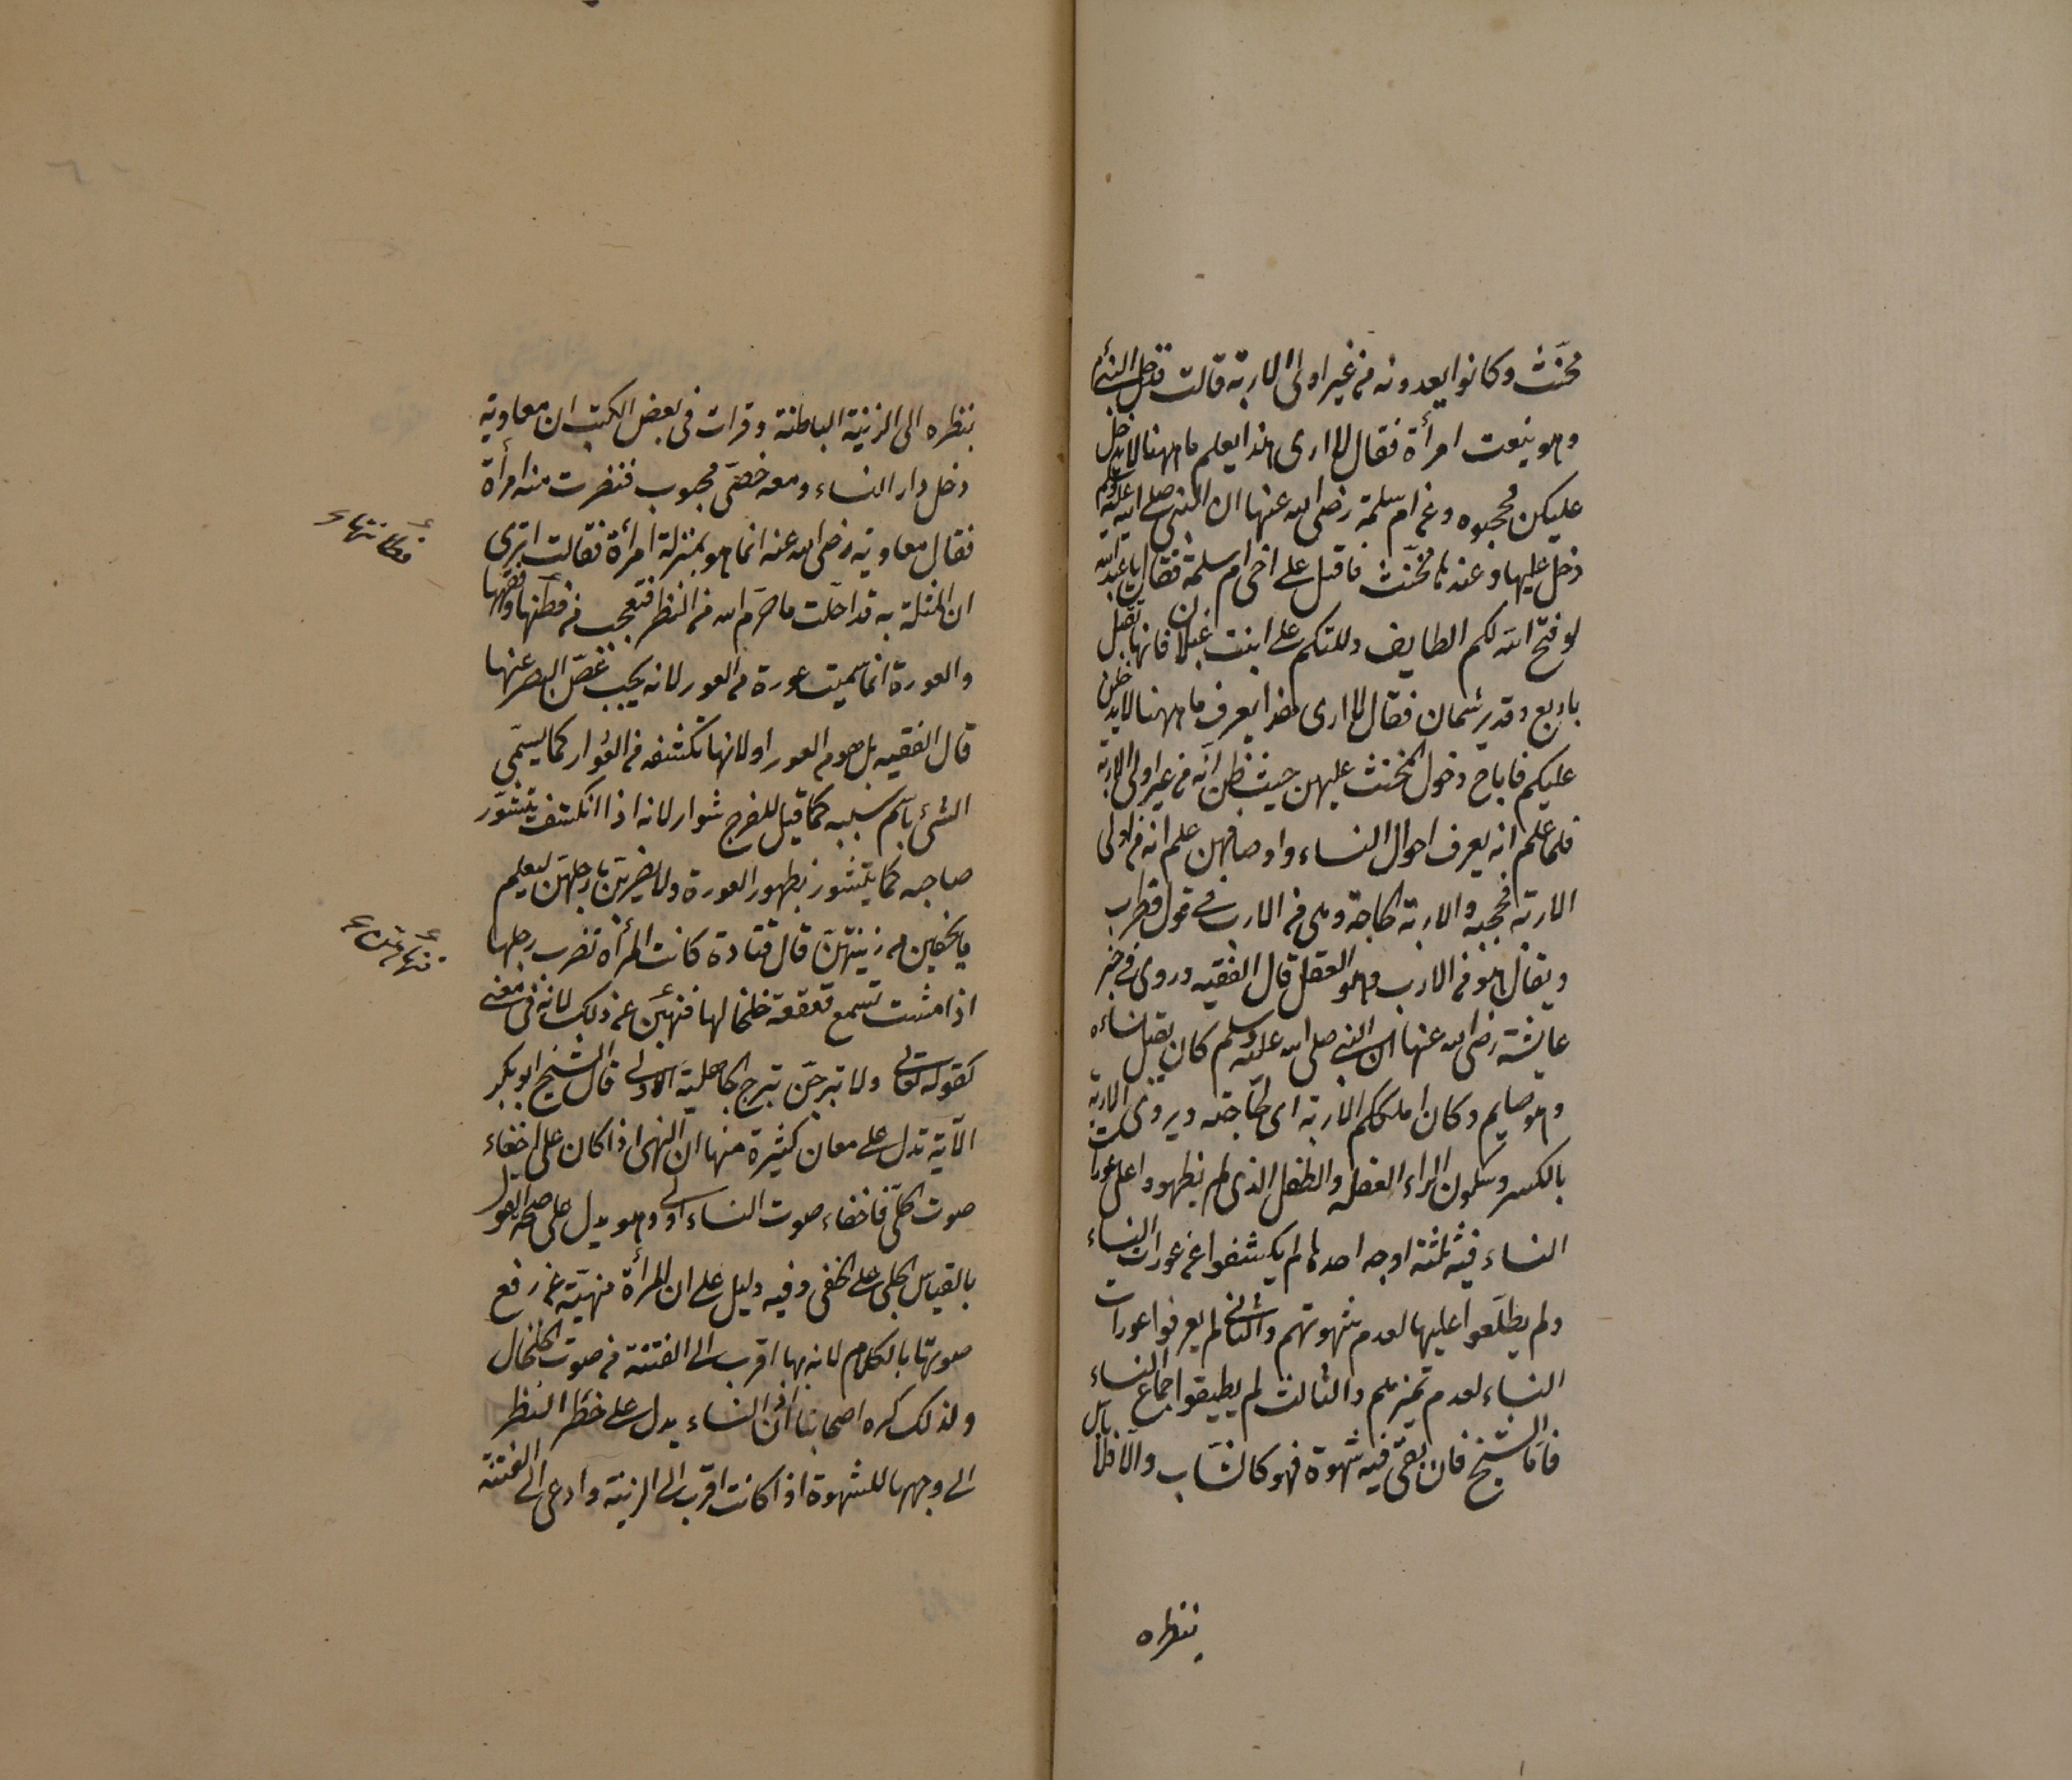 مخنّث وكانوا يعدونه من غير اولى الاربة قالت فدخل النبى م
وهو ينعت امرأة فقال لا ارى هذا يعلم ما ههنا لا يدخل
عليكن فحجبوه وعن ام سلمة رضى الله عنها ان النبى صلى الله عليه وسلم
دخل عليها وعندها مخنّث فاقبل على اخى ام سلمة فقال يا عبد الله
لو فتح الله لكم الطايف دللتكم على ابنت غيلان فانها تقبل
باربع وتدبر بثمان فقال لا ارى هذا يعرف ما ههنا لا يدخلن
عليكم فاباح دخول المخنث عليهن حيث ظن انّه من غير اولى الاربة
فلما علم انه يعرف احوال النساء واوصافهن علم انه من اولى
الاربة فحجبه والاربة الحاجة وهى من الارب فى قول قطرب
ويقال هو من الارب وهو العقل قال الفقيه وروى فى خبر
عايشة رضى الله عنها ان النبى صلى الله عليه وسلم كان يقبل نساءه
وهو صايم وكان املككم لاربه اى لحاجته ويروى الاربة
بالكسر وسكون الراء العضلة والطفل الذى لم يظهروا على عورات
النساء فيه ثلثة اوجه احدها لم يكشفوا عن عورات النساء
ولم يطلّعوا عليها لعدم شهوتهم والثانى لم يعرفوا عورات
النساء لعدم تميزهم والثالث لم يطيقوا جماع النساء
فامّا الشيخ فان بقى فيه شهوة فهو كالشاب والّا فلا باس
بنظره
بنظره الى الزينة الباطنة وقرات فى بعض الكتب ان معاوية
دخل دار النساء ومعه خصىّ مجبوب فنفرت منه امرأة
فقال معاوية رضى الله عنه انما هو بمنزلة امرأة فقالت اترى
ان المثلة به قد احلّت ما حرّم الله من النظر فتعجب من فطنتها وفقهها
والعورة انما سميت عورة من العور لانه يجب غضّ البصر عنها
قال الفقيه بل هو من العور او لانها تكشفه من العوار كما يسمّى
الشئ باسم سببه كما قيل للفرج شوار لانه اذا انكشف يتشوّر
صاحبه كما يتشور بظهور العورة ولا يضربن بارجلهنّ ليعلم
ما يخفين من زينتهنّ قال قتادة كانت المرأة تضرب رجلها
اذا مشت تسمع قعقعة خلخالها فنهين عن ذلك لانه فى معنى
كقوله تعالى ولا تبرجن تبرج الجاهلية الاولى قال الشيخ ابو بكر
الآية تدل على معان كثيرة منها ان النهى اذا كان على اخفاء
صوت الحلىّ فاخفاء صوت النساء اولى وهو يدل على صحة القول
بالقياس الجلى على الخفى وفيه دليل على ان المرأة منهيّة عن رفع
صوتها بالكلام لانه بها اقرب الى الفتنة من صوت الخلخال
ولذلك كره اصحابنا اذن النساء يدل على خطر النظر
الى وجهها للشهوة اذا كانت اقرب الى الزينة وادعى الى الفتنة